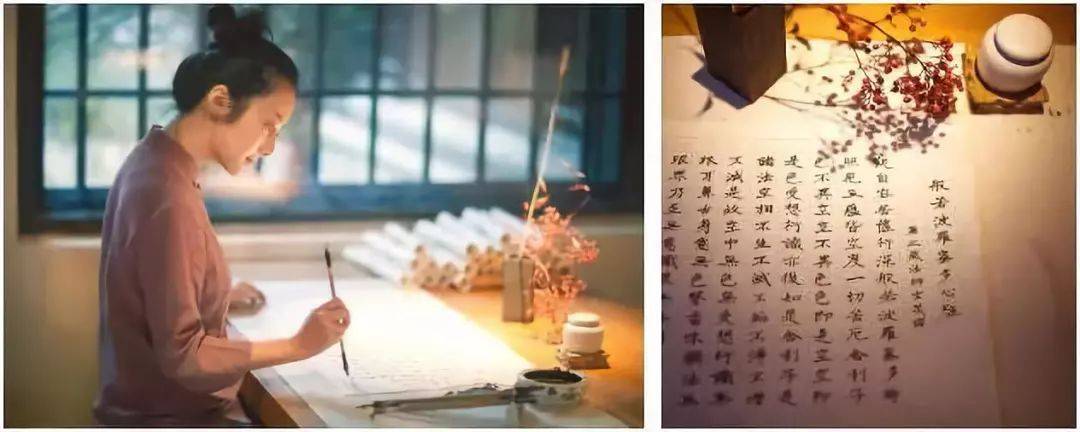 般若波羅蜜多心經
唐三藏法師玄奘譯
觀自在菩薩行深般若波羅蜜多時
照見五蘊皆空度一切苦厄舍利子
色不異空空不異色色即是空空即
是色受想行識亦復如是舍利子是
諸法空相不生不滅不垢不淨不增
不減是故空中無色無受想行識無
眼耳鼻舌身意無色聲香味觸法無
眼界乃至無意識